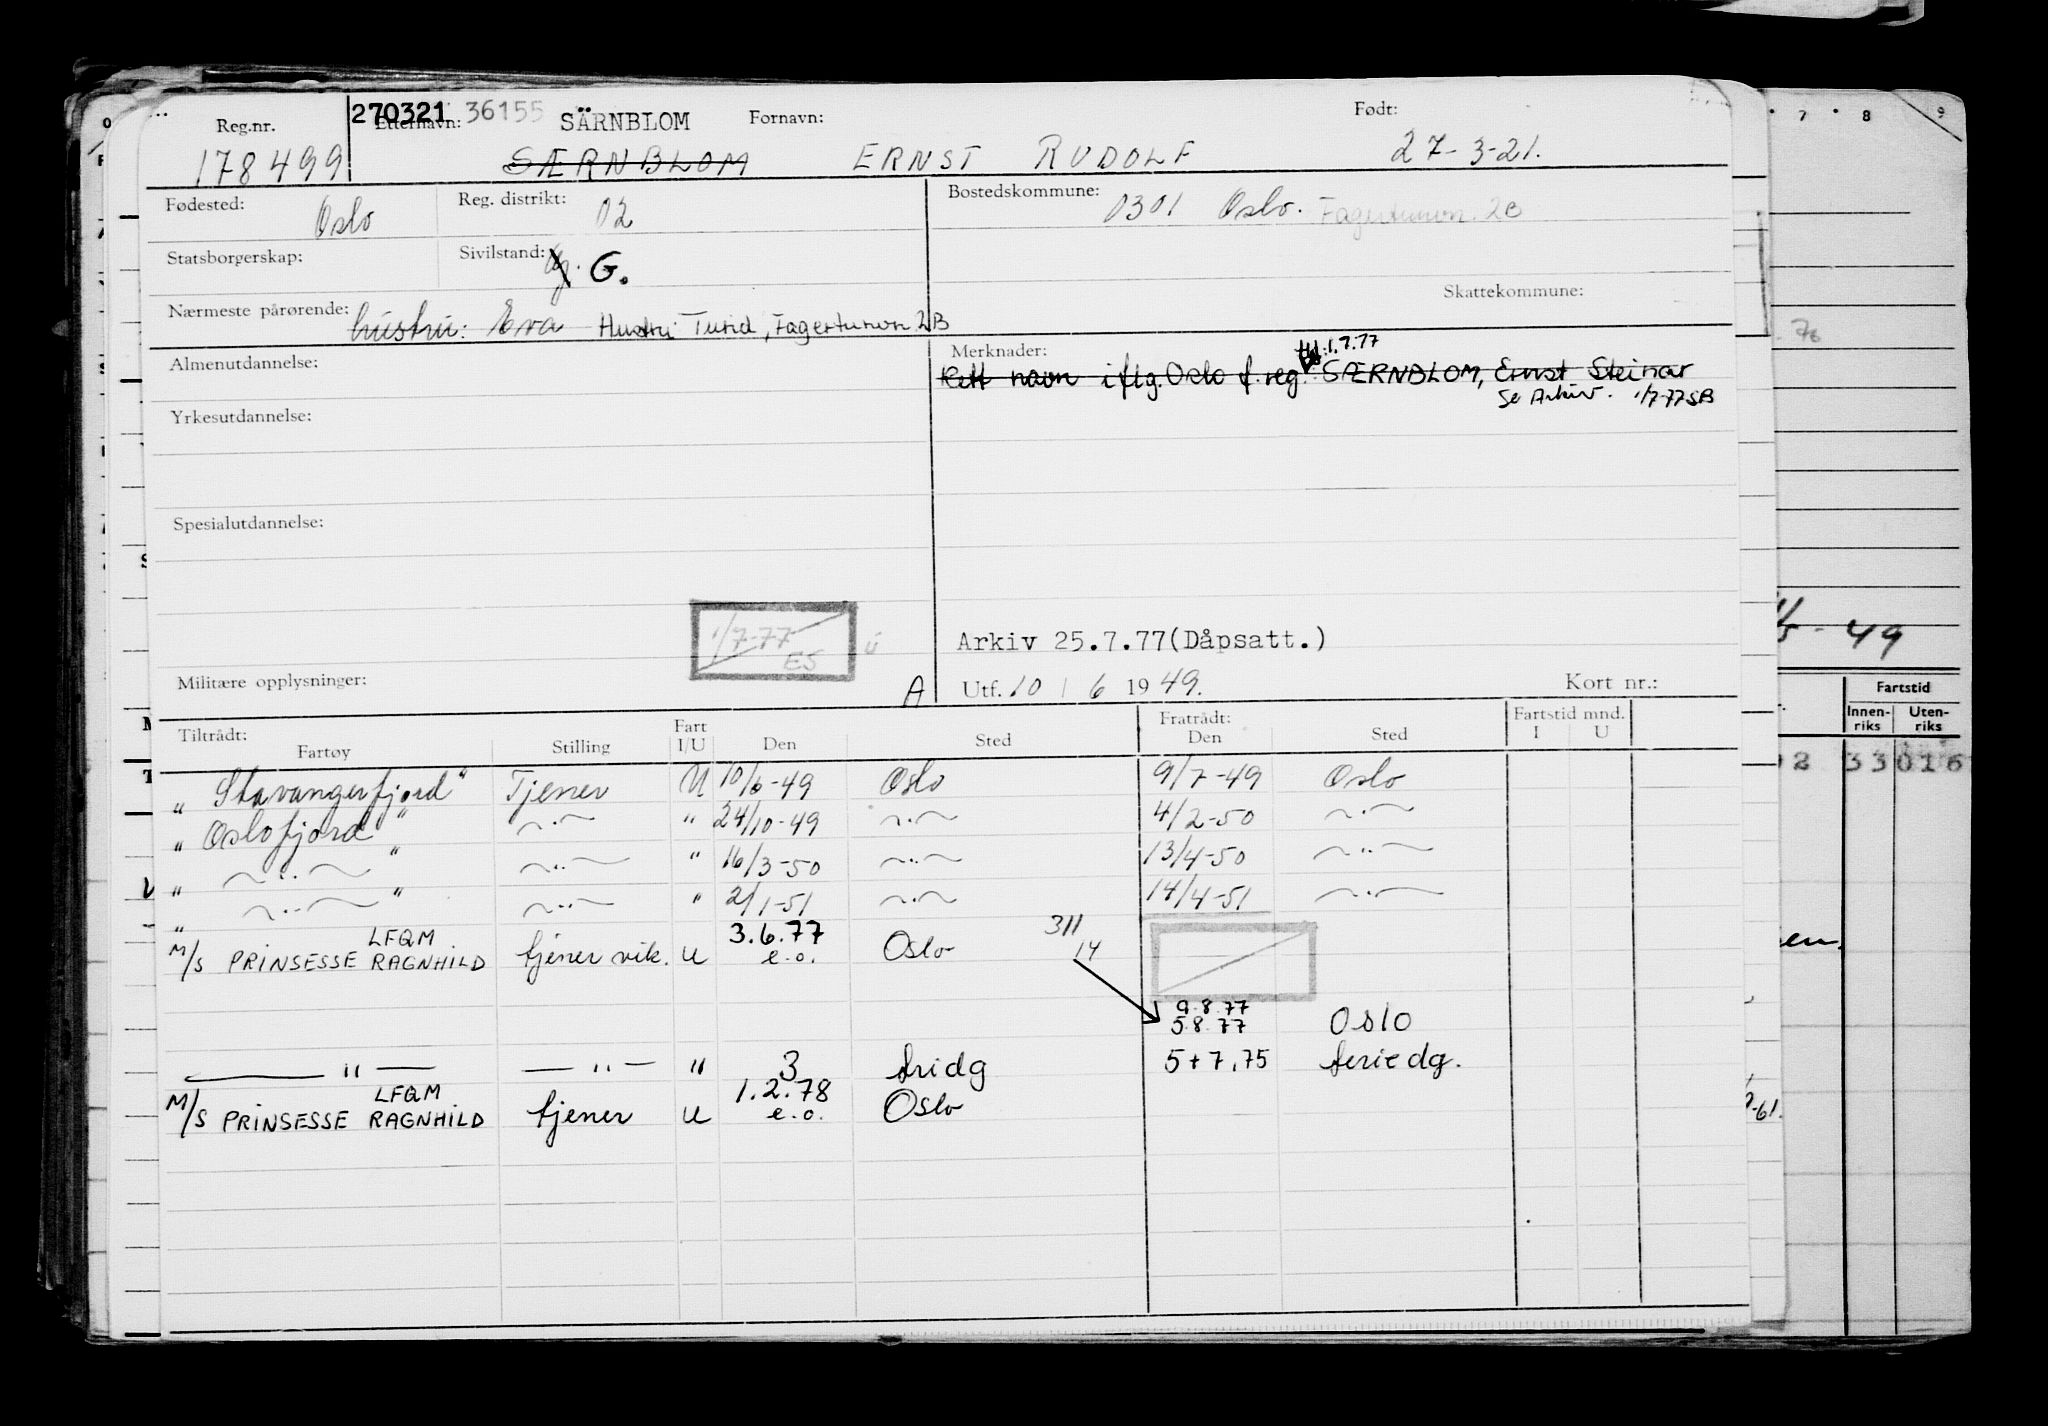 Reg.nr. 270321 36155 Etternavn: SÄRNBLOM Fornavn: Født:
178499 SÆRNBLOM ERNST RUDOLF 27-3-21.
Fødested: Oslo Reg. distrikt: 02 Bostedskommune: 0301 Oslo. Fagertunvn. 2B
Statsborgerskap: Sivilstand: G.
Skattekommune:
Nærmeste pårørende: hustru: Eva Hustru: Turid, Fagertunvn 2B
Almenutdannelse: Merknader: 1.7.77
Rett navn iflg. Oslo f.reg. SÆRNBLOM, Ernst Steinar
Se Arkiv. 1/7-77 SB
Yrkesutdannelse:
Spesialutdannelse:
1/7-77
ES
Arkiv 25.7.77(Dåpsatt.)
Militære opplysninger: A Utf. 10 / 6 1949. Kort nr.:
Tiltrådt: Fart Fratrådt: Fartstid mnd.
Fartøy Stilling I/U Den Sted Den Sted I U
„ Stavangerfjord" Tjener U 10/6-49 Oslo 9/7-49 Oslo
„ Oslofjord " ~··~ " 24/10-49 ~··~ 4/2-50 ~··~
„ ~··~ " ~··~ " 16/3-50 ~··~ 13/4-50 ~··~
„ ~··~ " ~··~ " 2/1-51 ~··~ 14/4-51 ~··~
„
LFQM 3.6.77 311
M/S PRINSESSE RAGNHILD tjener vik. U e.o. Oslo 14
9.8.77
5.8.77 Oslo
— " — — " — " 3 fridg 5+7,75 feriedg.
LFQM 1.2.78
M/S PRINSESSE RAGNHILD tjener U e.o. Oslo
7 8 9
49
Fartstid
Innen-riks Uten-riks
2 33016
-61.